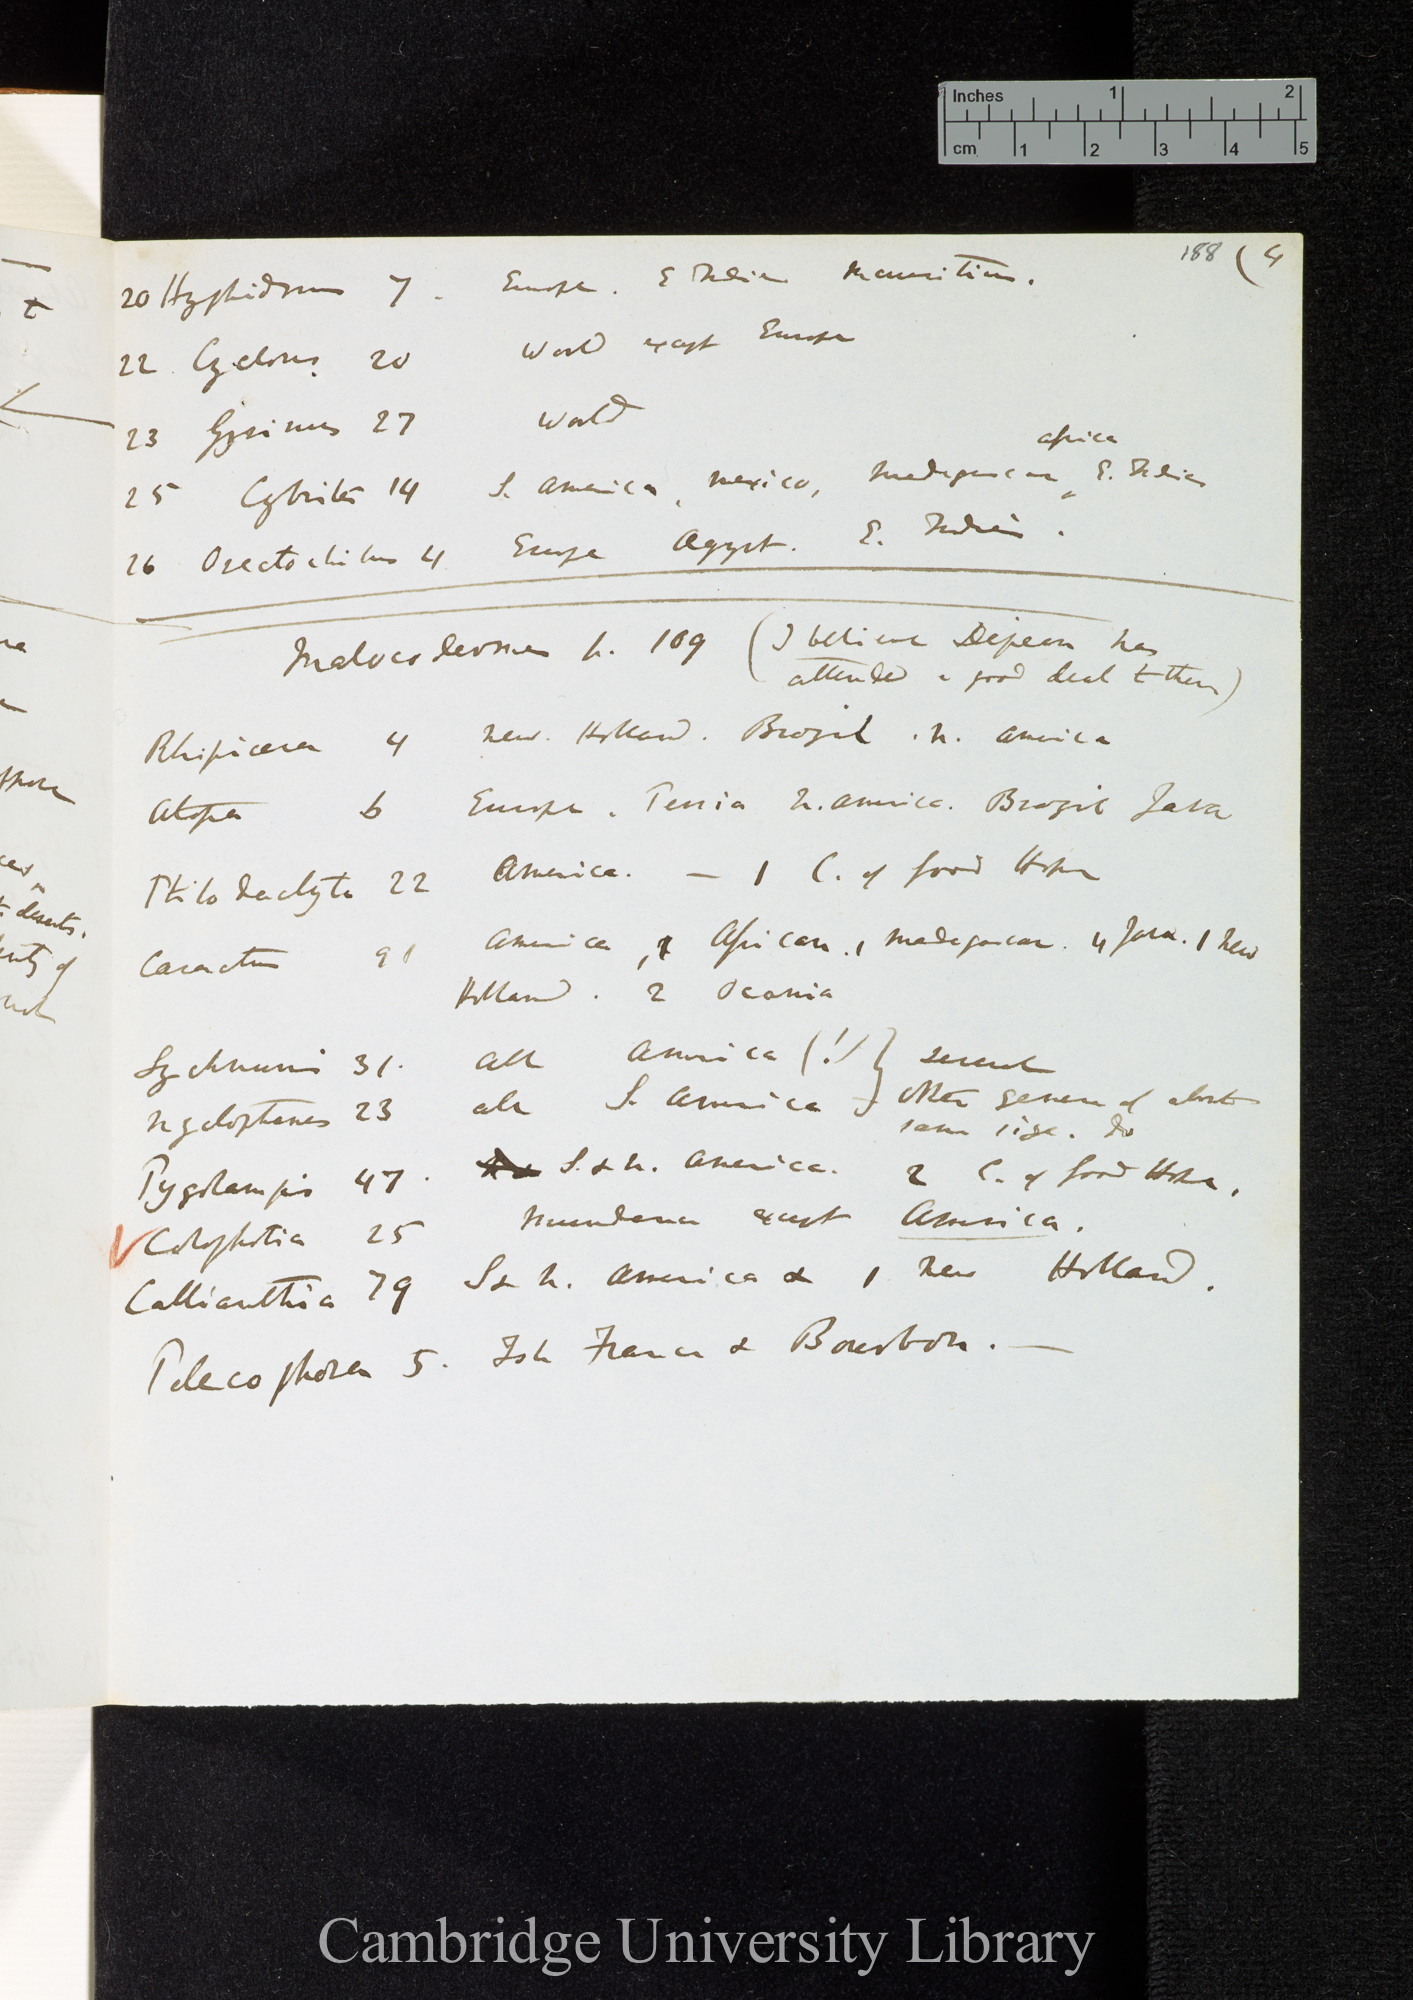 188 (4
20 Hyphidrus 7. Europe. E Indies Mauritius.
22 Cyclous 20 World except Europe
23 Gyrinus 27 World
africa
25 Cybister 14 S. America, Mexico, Madagascar, E. Indies
26 Orectochilus 4 Europe Aegypt. E. Indies.
Malacodermes p. 109 (I believe Dejean has
attended a good deal to them)
Rhipicera 4 New. Holland. Brazil. N. America
Atopa 6 Europe. Persia N. America. Brazil Java
Ptilodactyla 22 America. — 1 C. of Good Hope
America, 1 African, 1 Madagascar. 4 Java. 1 New
91
Holland. 2 Oceania
31. all America (!) } several
23 all S. America } other genera of about
same size. do
Pygolampis 47. S. & N. America. 2 C. of Good Hope.
Colophotia 25 Mundana except America.
Callianthia 79 S & N. America & 1 New Holland.
Telecophora 5. Isle France & Bourbon. —
deserts.
of
Inches 1 2
cm 1 2 3 4 5
Cambridge University Library